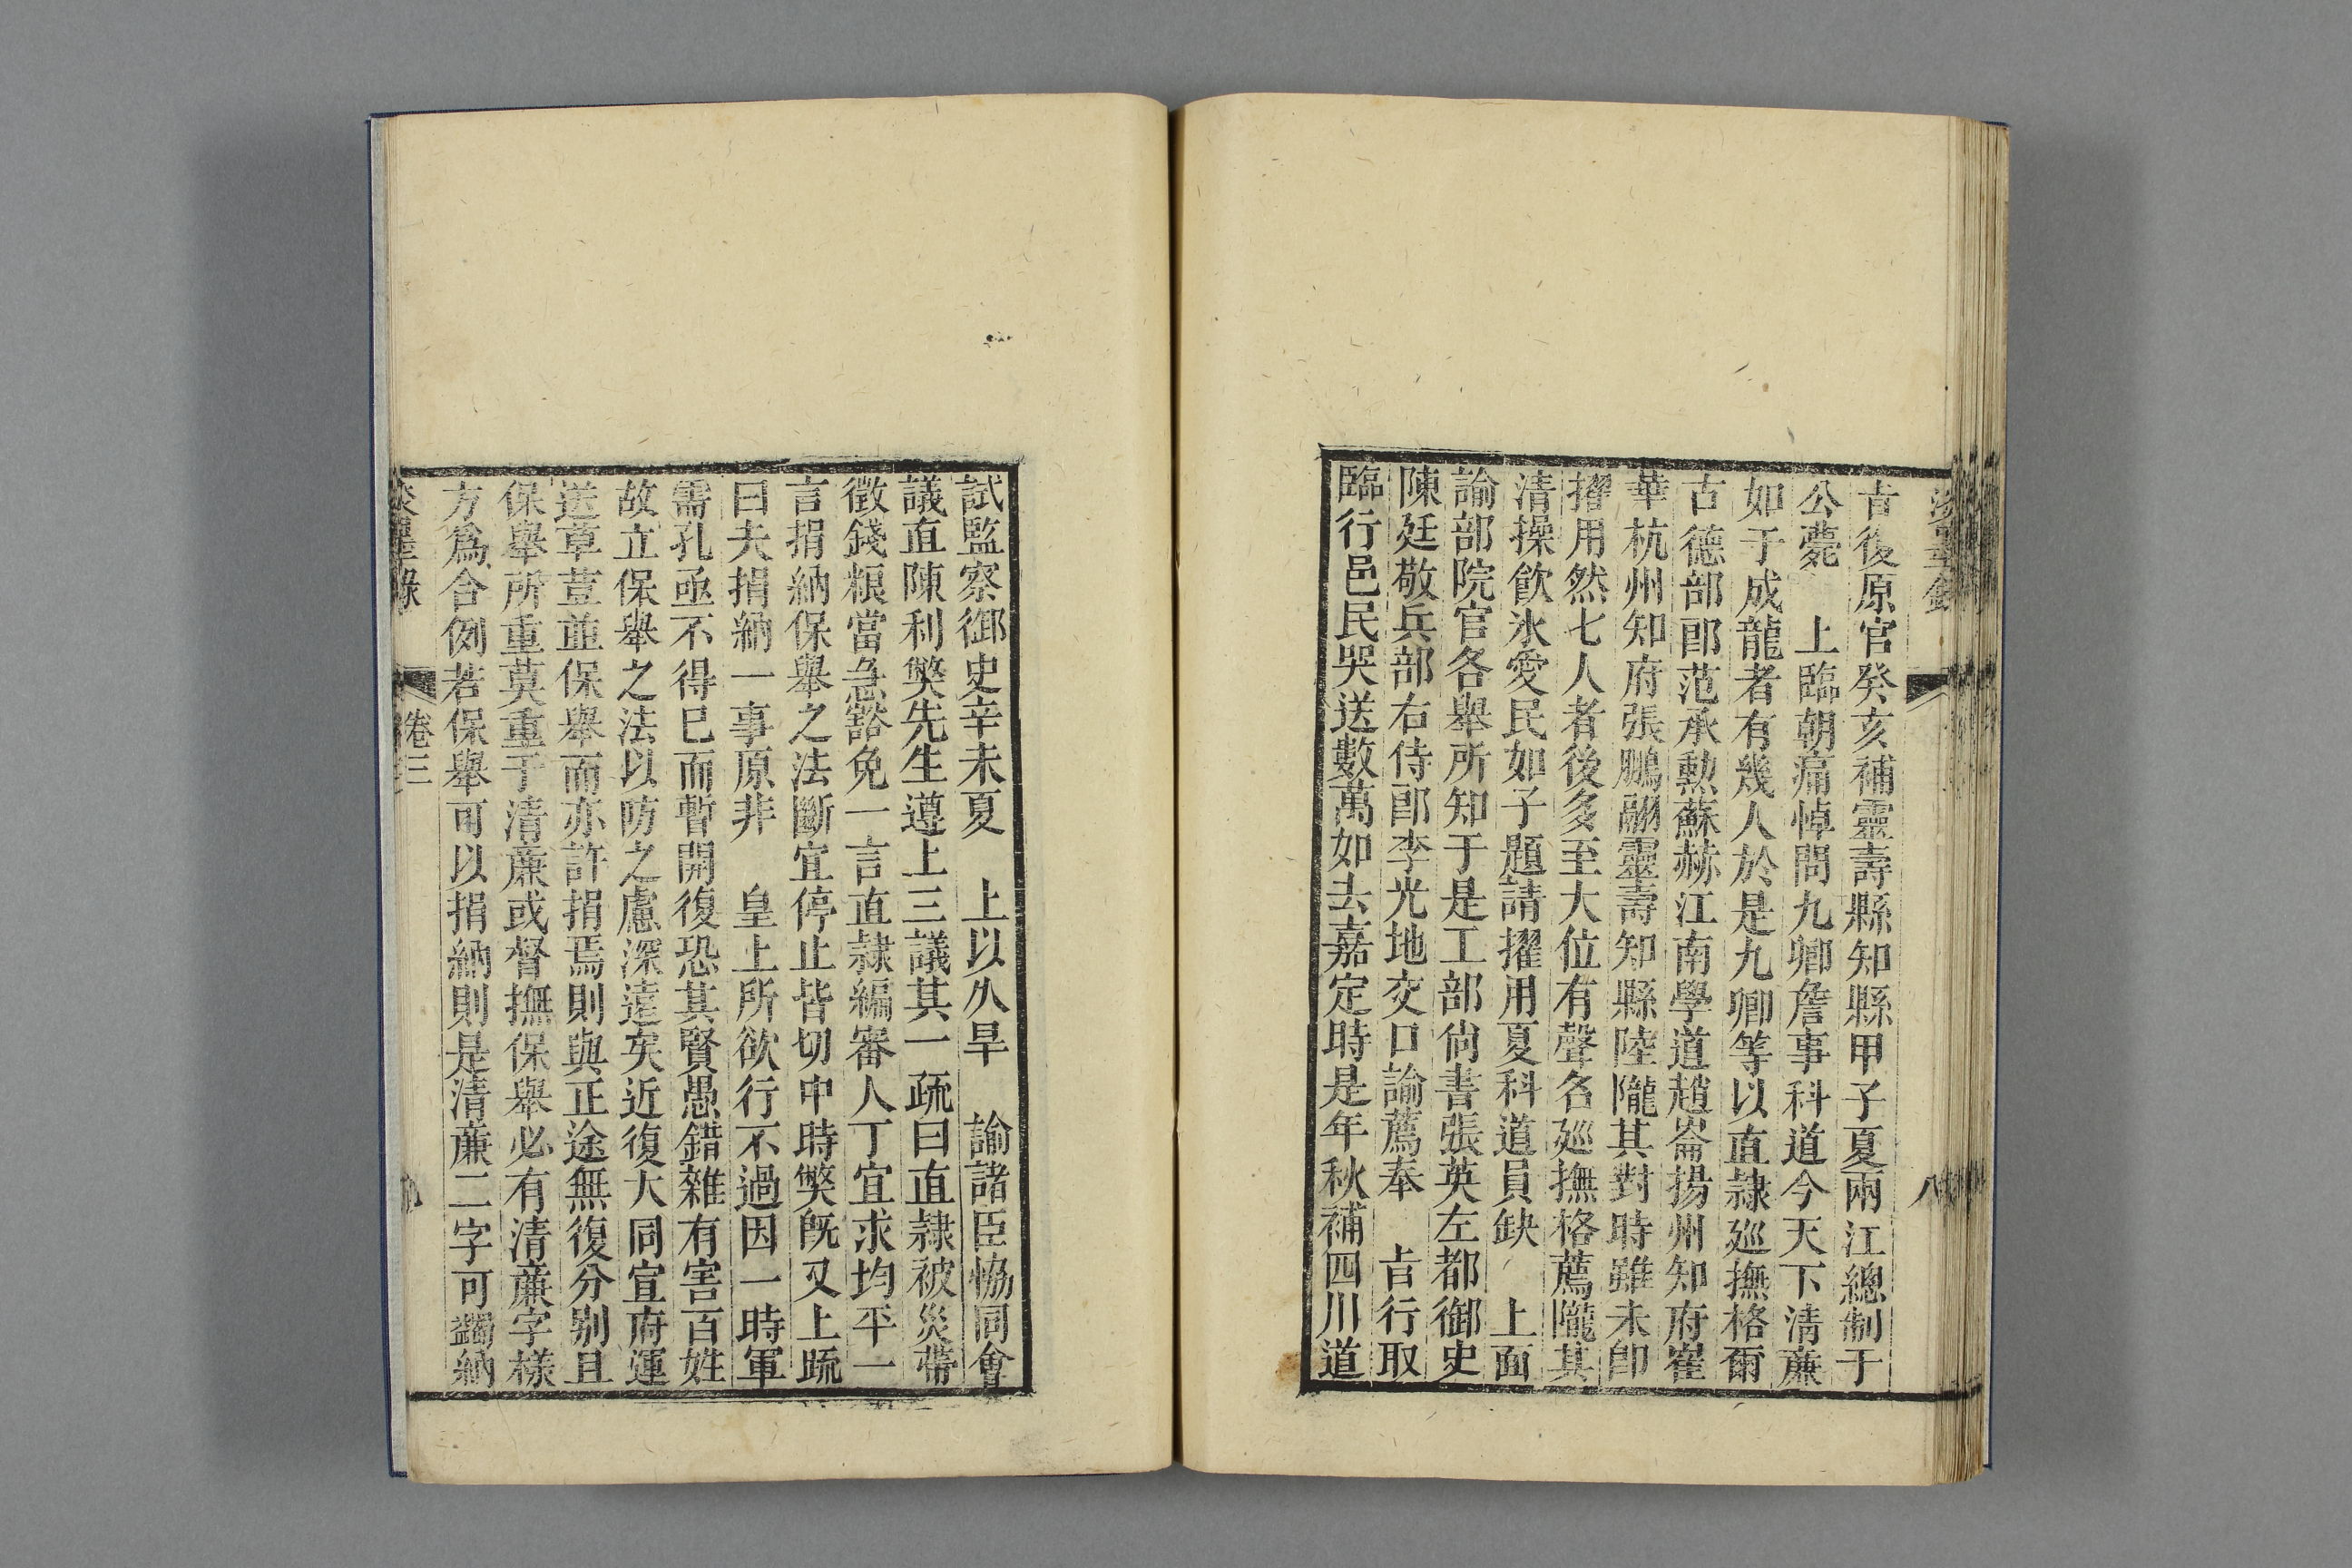 旨後原官癸亥補靈壽縣知縣甲子夏兩江總制于
公薨　上臨朝痛悼問九卿詹事科道今天下清廉
如于成龍者有幾人於是九卿等以直隷廵撫格爾
古德部郎范承勲蘇赫江南學道趙崙揚州知府崔
華杭州知府張鵬翮靈壽知縣陸隴其對時雖未卽
擢用然七人者後多至大位有聲名廵撫格薦隴其
清操飲氷愛民如子題請擢用夏科道員缺　上面
諭部院官各舉所知于是工部尚書張英左都御史
陳廷敬兵部右侍郎李光地交口諭薦奉　旨行取
臨行邑民哭送數萬如去嘉定時是年秋補四川道
八
試監察御史辛未夏　上以久旱　諭諸臣恊同會
議直陳利獘先生遵上三議其一疏曰直隷被災帶
徵錢粮當急豁免一言直隷編審人丁宜求均平一
言捐納保舉之法斷宜停止皆切中時獘旣又上疏
曰夫捐納一事原非　皇上所欲行不過因一時軍
需孔亟不得已而暫開復恐其賢愚錯雜有害百姓
故立保舉之法以防之慮深遠矣近復大同宣府運
送草荳並保舉而亦許捐焉則與正途無復分别且
保舉所重莫重于清廉或督撫保舉必有清廉字樣
方爲合例若保舉可以捐納則是清廉二字可蠲納
卷三